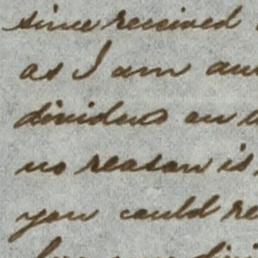 since received
as I am
dividend on
no reason is
you could re